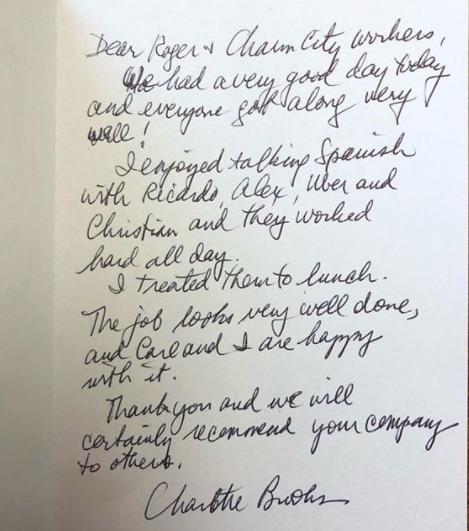 Dear Roger & Charm City workers,
We had a very good day today
and everyone got along very
well!
I enjoyed talking Spanish
with Ricardo, Alex, Uber and
Christian and they worked
hard all day.
I treated them to lunch.
The job looks very well done,
and Carl and I are happy
with it.
Thank you and we will
certainly recommend your company
to others.
Charlotte Brooks